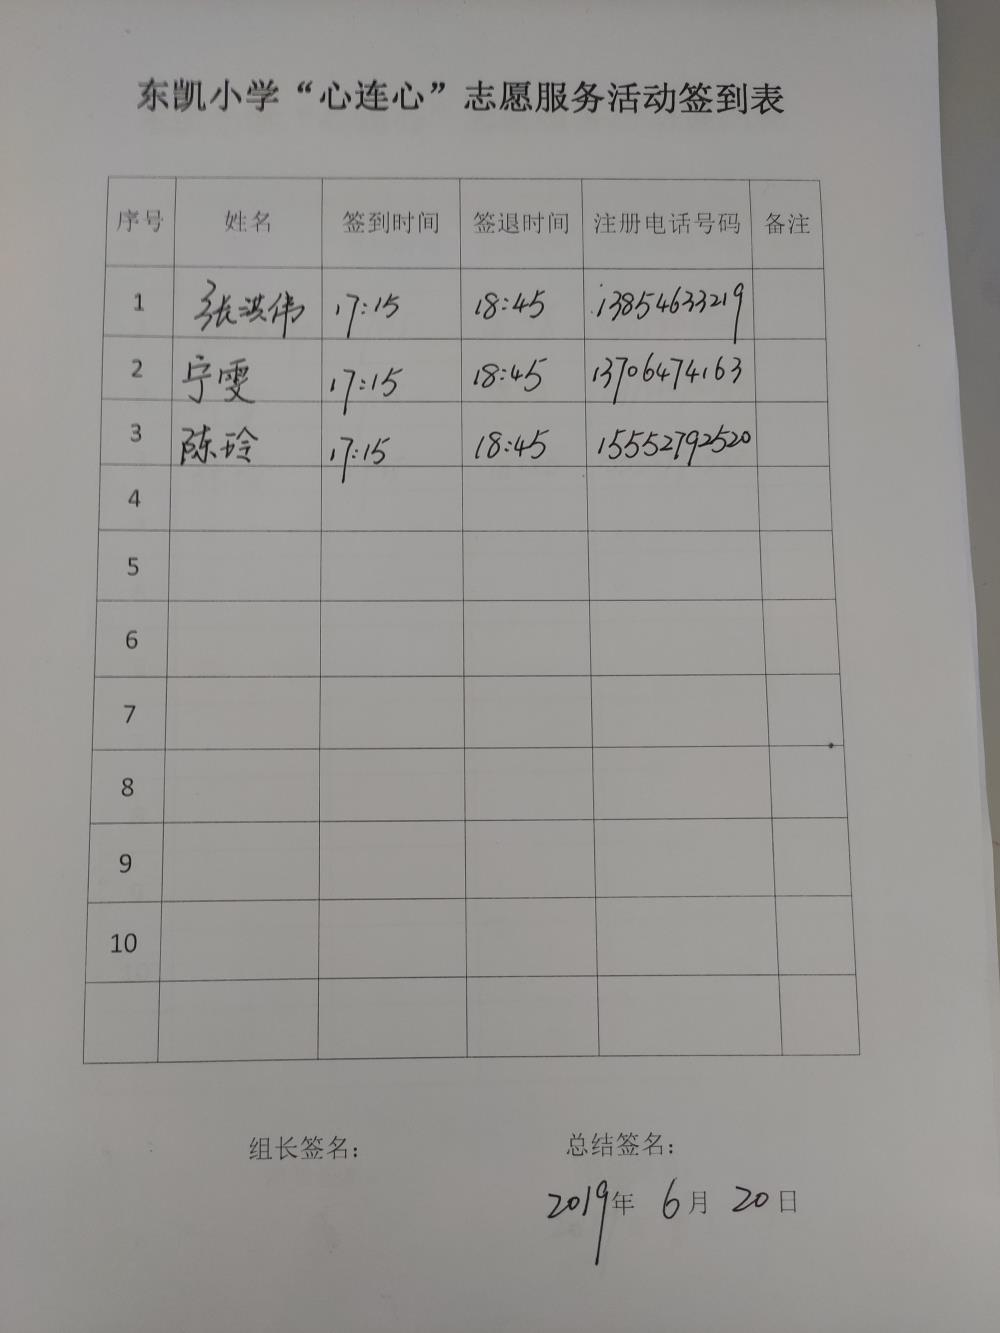 东凯小学“心连心”志愿服务活动签到表
序号 姓名 签到时间 签退时间 注册电话号码 备注
1 张洪伟 17:15 18:45 13854633219
2 宁雯 17:15 18:45 13706474163
3 陈玲 17:15 18:45 15552792520
4
5
6
7
8
9
10
组长签名： 总结签名：
2019年 6月 20日